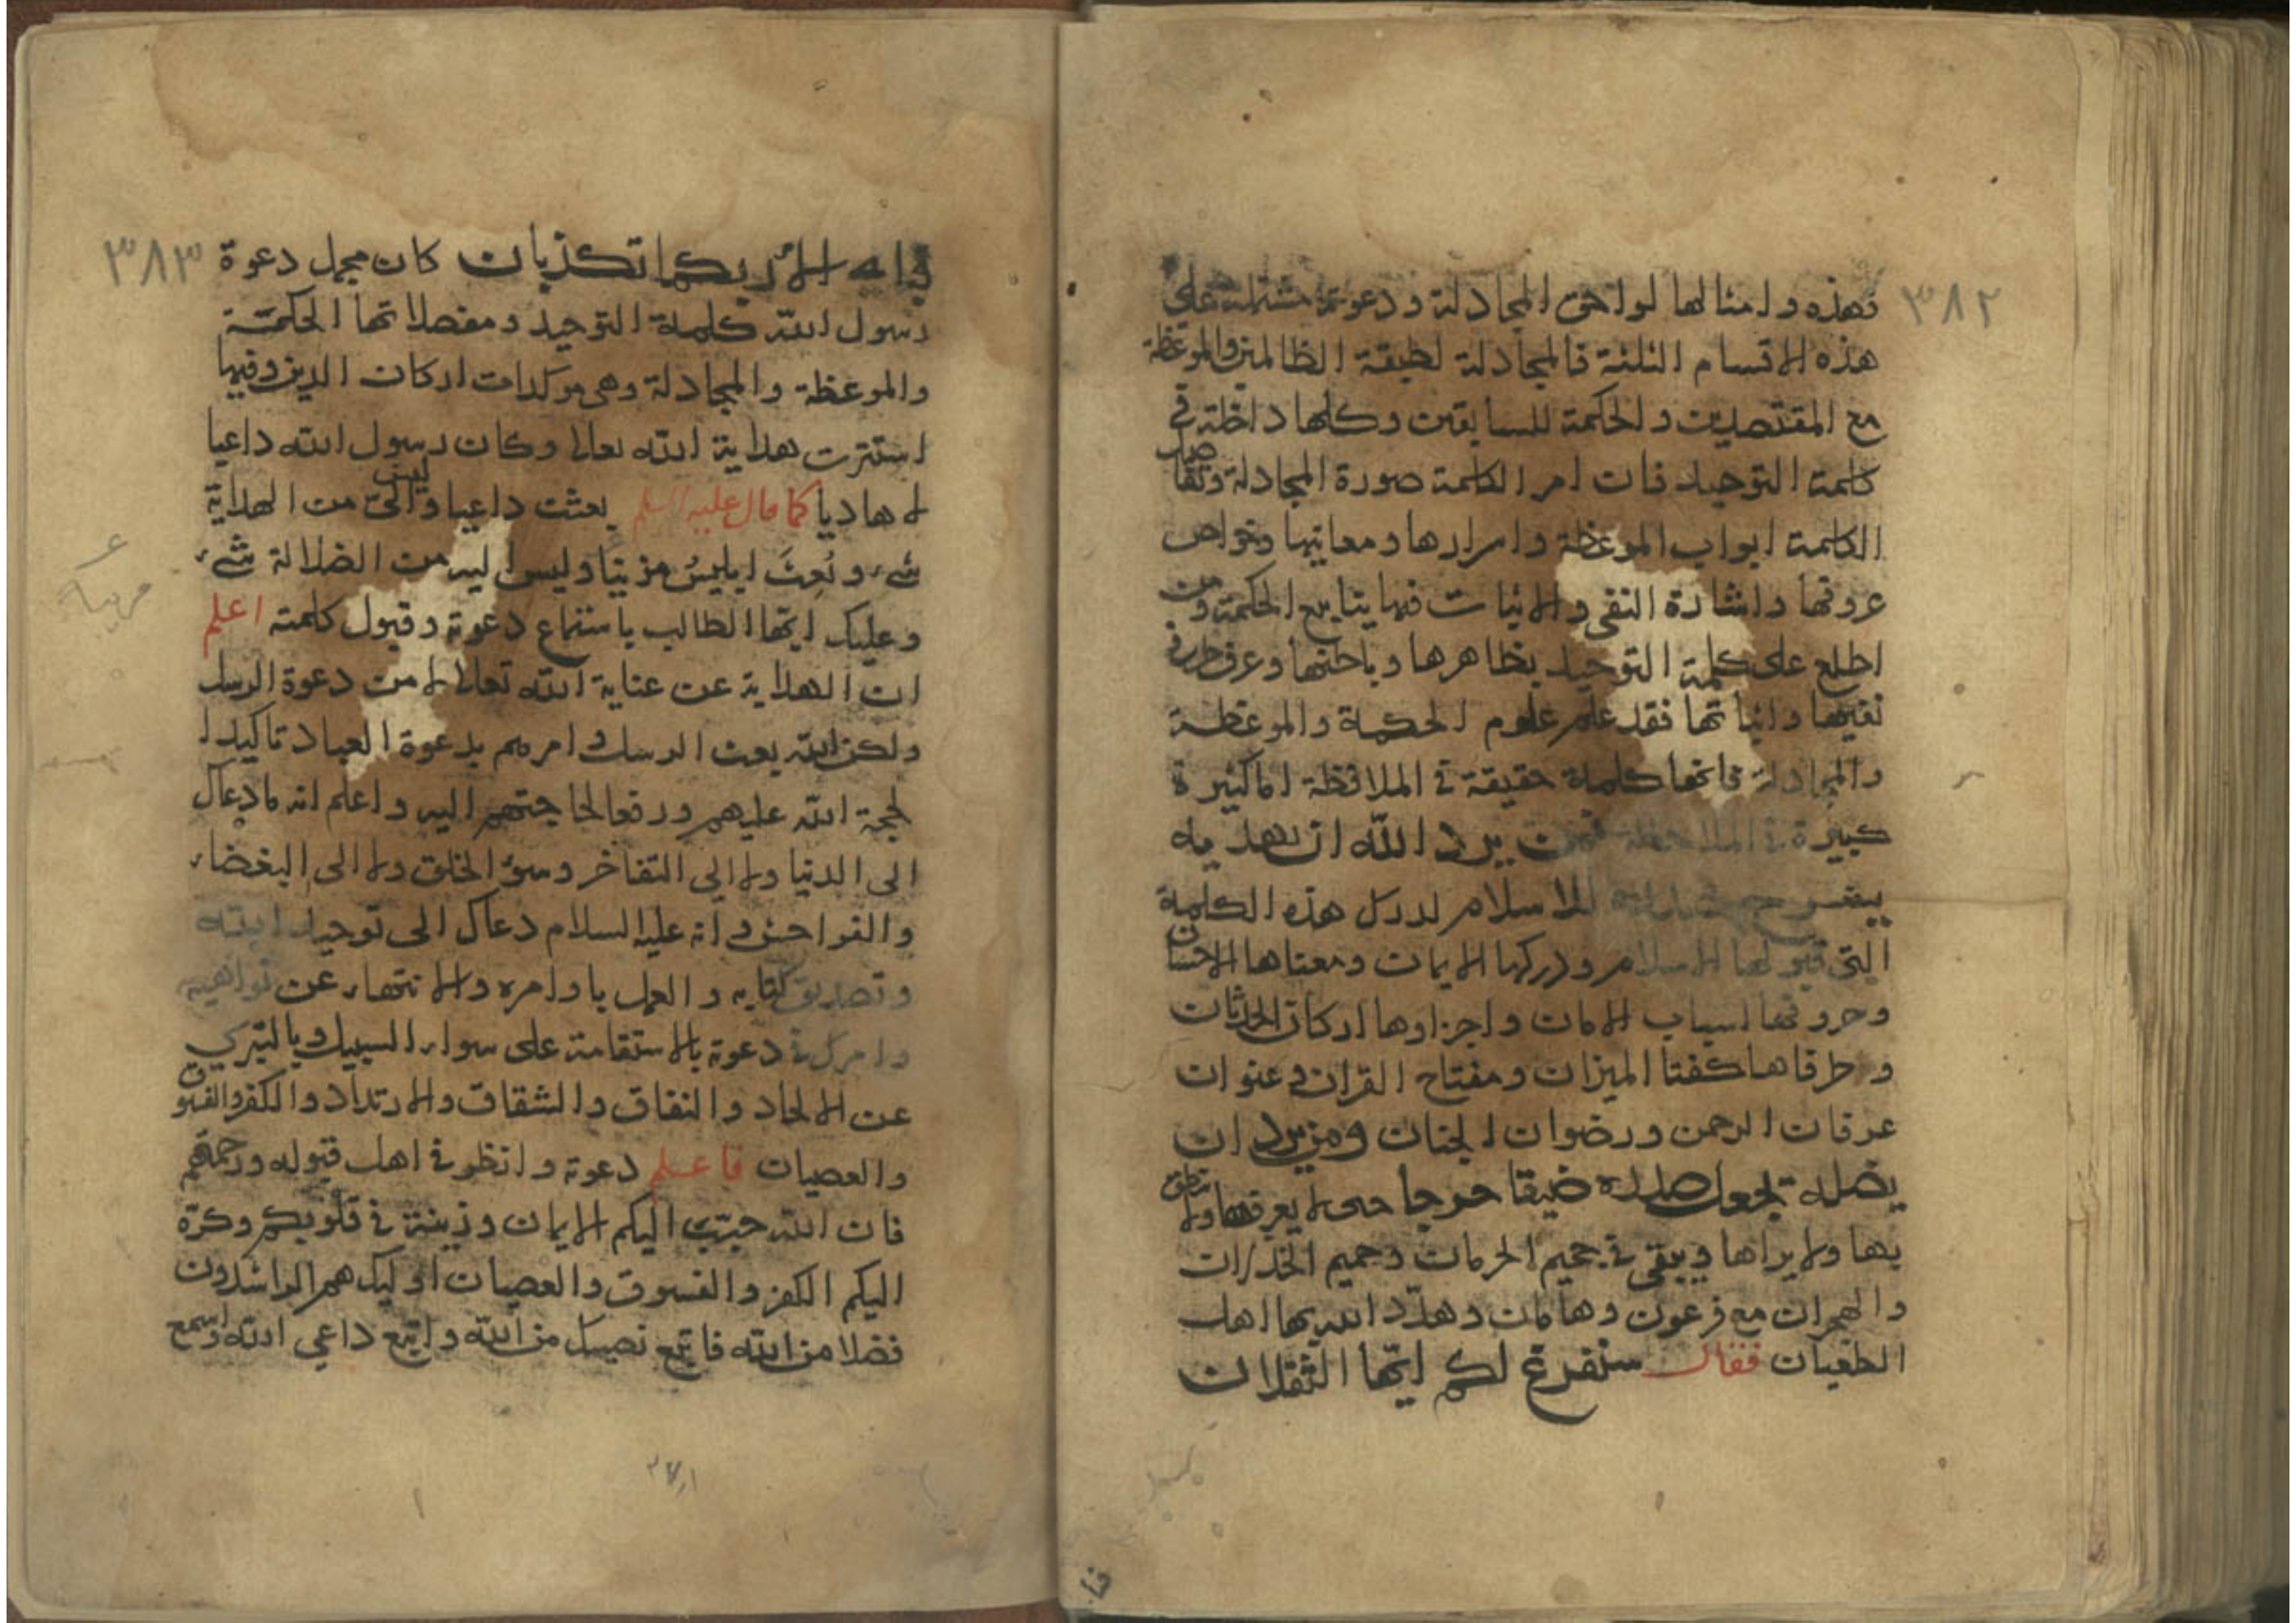 ٣٨٢
فهذه وامثالها لواحق المجادلة ودعوته مشتملة على
هذه الاقسام الثلثة فالمجادلة لطبقة الظالمين والموعظة
مع المقتصدين والحكمة للسابقين وكلها داخلة في
كلمة التوحيد فان امر الكلمة صورة المجادلة وتفاصيل
الكلمة ابواب الموعظة واسرارها ومعانيها وخواص
حروفها واشارة النفي والاثبات فيها ينابيع الحكمة ومن
اطلع على كلمة التوحيد بظاهرها وباطنها وعرف طرفي
نفيها واثباتها فقد علم علوم الحكمة والموعظة
والمجادلة فانها كلمة حقيقة في الملافظة اما كثيرة
كبيرة في الملاحظة فمن يرد الله ان يهديه
يشرح صدره للاسلام لدرك هذه الكلمة
التي قبولها الاسلام ودركها الايمان ومعناها الاحسان
وحروفها اسباب الامان واجزاوها اركان
وطرفاها كفتا الميزان ومفتاح القران وعنوان
عرفان الرحمن ورضوان الجنان ومن يرد ان
يضله يجعل صدره ضيقا حرجا حتى لا يعرفها ولا ينطق
بها ولا يراها ويبقى في جحيم الحرمان وحميم الخذلان
والهجران مع فرعون وهامان وهدد الله بها اهل
الطغيان فقال سنفرغ لكم ايها الثقلان
فبا
٣٨٣
فباي الاء ربكما تكذبان كان مجمل دعوة
رسول الله كلمة التوحيد ومفصلاتها الحكمة
والموعظة والمجادلة وهي موكدات اركان الدين وفيها
استترت هداية الله تعالى وكان رسول الله داعيا
لا هاديا كما قال عليه السلم بعثت داعيا وليس الي من الهداية
شيء وبُعِثَ ابليسُ مزينا وليس اليه من الضلالة شيء
وعليك ايها الطالب باستماع دعوته وقبول كلمته اعلم
ان الهداية عن عناية الله تعالى لا من دعوة الرسل
ولكن الله بعث الرسل وامرهم بدعوة العباد تاكيدا
لحجة الله عليهم ورفعا لحاجتهم اليه واعلم انه ما دعاك
الى الدنيا ولا الى التفاخر وسؤ الخلق ولا الى البغضاء
والفواحش وانه عليه السلام دعاك الى توحيد الله
وتصديق كتابه والعمل باوامره والانتهاء عن نواهيه
وامرك في دعوته بالاستقامة على سواء السبيل وبالتبري
عن الالحاد والنفاق والشقاق والارتداد والكفر والفسوق
والعصيان فاعلم دعوته وانظر في اهل قبوله ورحمهم
فان الله حبب اليكم الايمان وزينه في قلوبكم وكرّه
اليكم الكفر والفسوق والعصيان اوليك هم الراشدون
فضلا من الله فاتبع نصيبك من الله واتبع داعي الله واسمع